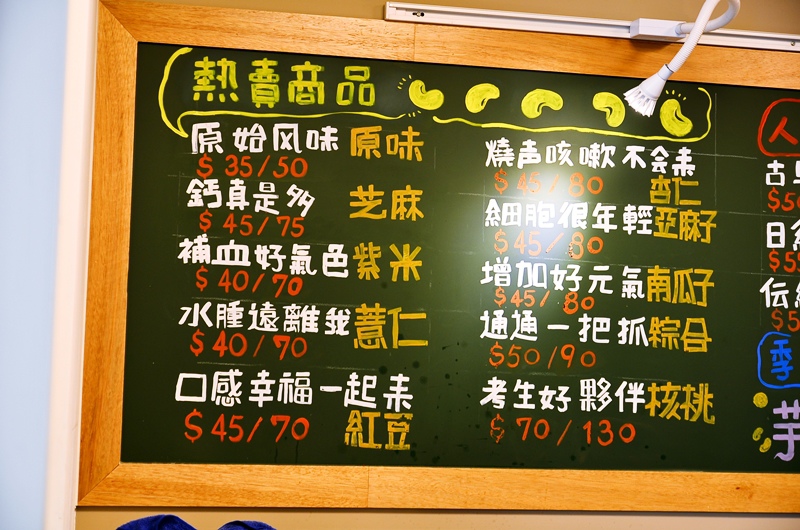 熱賣商品
原始风味 原味
$35/50
鈣真是多 芝麻
$45/75
補血好氣色 紫米
$40/70
水腫遠離我 薏仁
$40/70
口感幸福一起来
$45/70 紅豆
燒声咳嗽不会来
$45/80 杏仁
細胞很年輕 亞麻子
$45/80
增加好元氣 南瓜子
$45/80
通通一把抓 綜合
$50/90
考生好夥伴 核桃
$70/130
人
古
$5
日
$5
伝
$5
季
芋